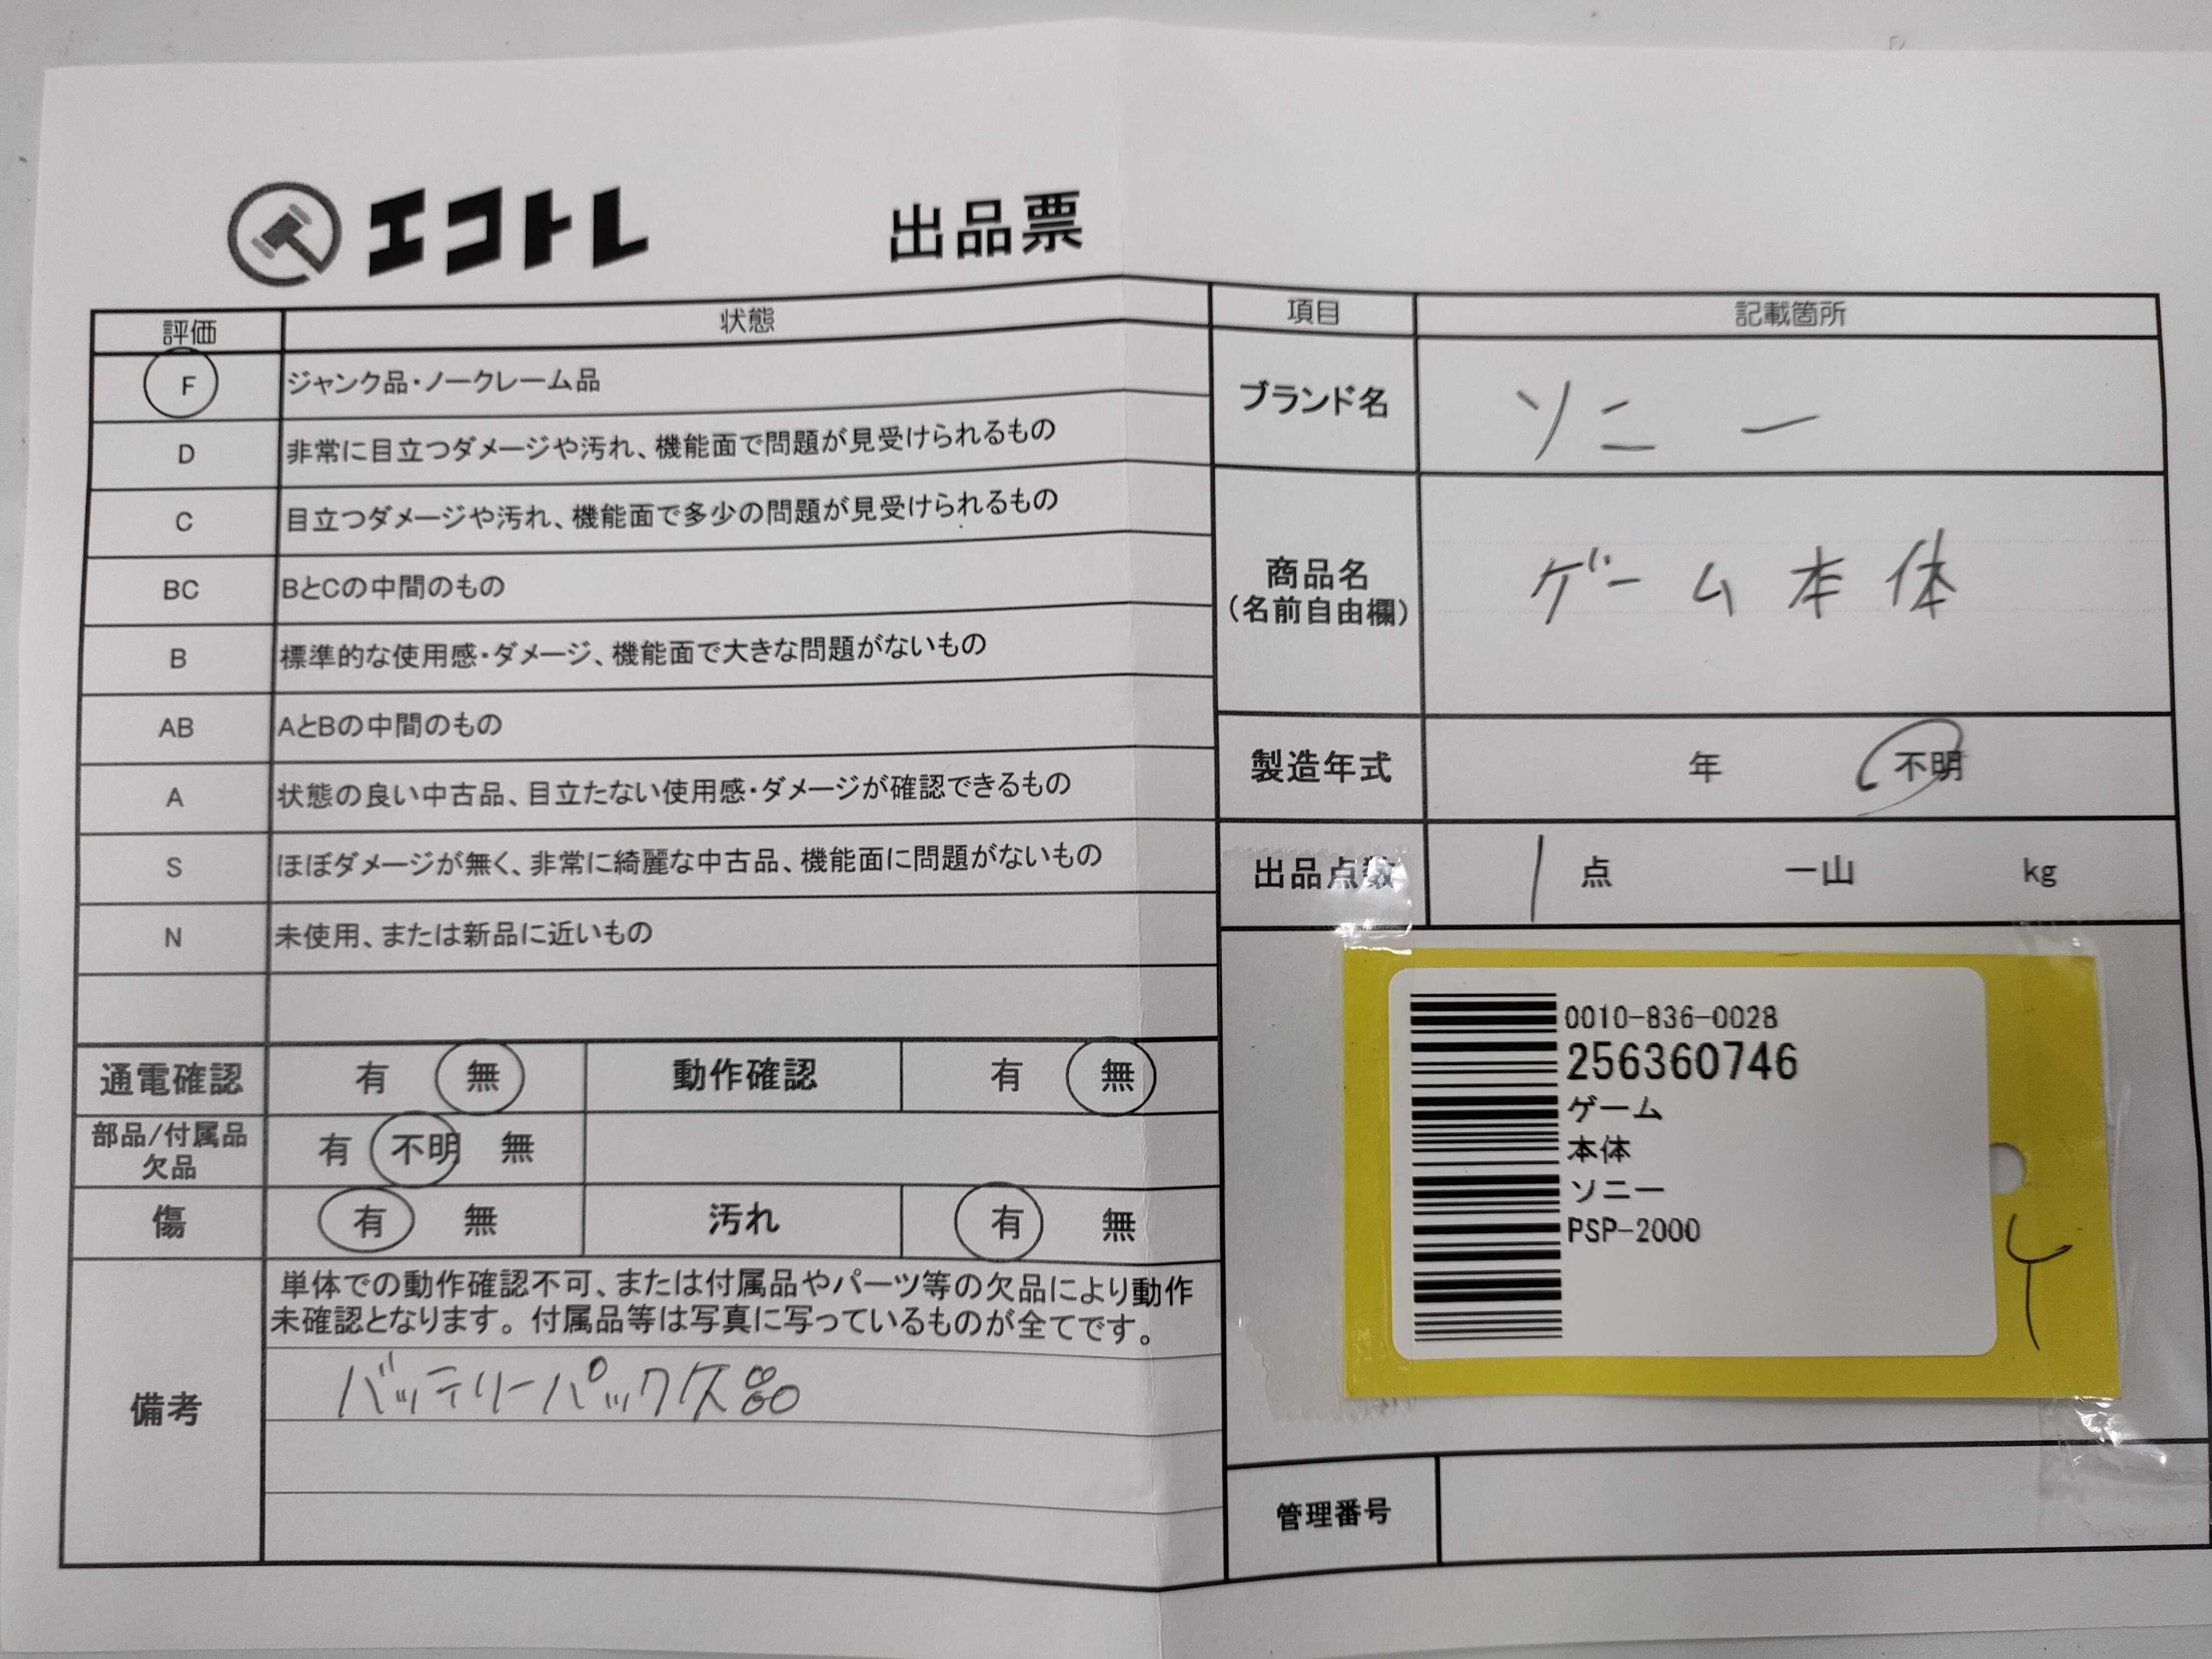 エコトレ
出品票
評価 状態
F ジャンク品・ノークレーム品
D 非常に目立つダメージや汚れ、機能面で問題が見受けられるもの
C 目立つダメージや汚れ、機能面で多少の問題が見受けられるもの
BC BとCの中間のもの
B 標準的な使用感・ダメージ、機能面で大きな問題がないもの
AB AとBの中間のもの
A 状態の良い中古品、目立たない使用感・ダメージが確認できるもの
S ほぼダメージが無く、非常に綺麗な中古品、機能面に問題がないもの
N 未使用、または新品に近いもの
通電確認 有 無 動作確認 有 無
部品/付属品
欠品
有 不明 無
傷 有 無 汚れ 有 無
備考
単体での動作確認不可、または付属品やパーツ等の欠品により動作
未確認となります。付属品等は写真に写っているものが全てです。
バッテリーパック欠品
項目 記載箇所
ブランド名 ソニー
商品名
(名前自由欄)
ゲーム本体
製造年式 年 不明
出品点数 1 点 一山 kg
0010-836-0028
256360746
ゲーム
本体
ソニー
PSP-2000
管理番号